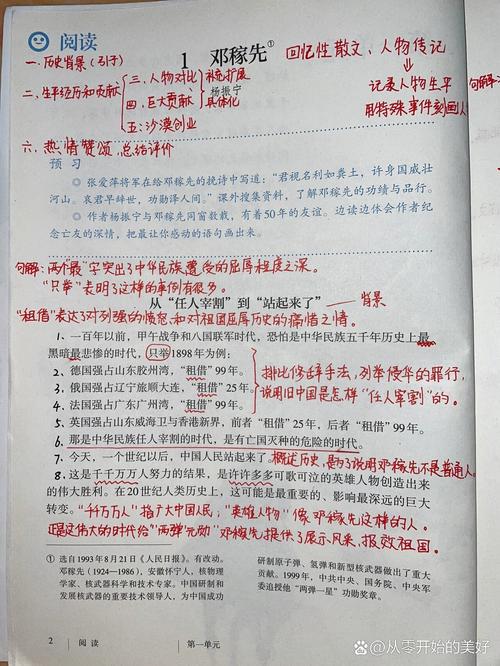 阅读
一. 历史背景（引子）
1 邓稼先①
回忆性散文、人物传记
二. 生平经历和贡献
三. 人物对比 补充扩展
四. 巨大贡献 具体化
五. 沙漠创业
杨振宁
记录人物生平
用特殊事例刻画人
句解:
六. 热情赞颂,总结评价
预 习
◎ 张爱萍将军在给邓稼先的挽诗中写道：“君视名利如粪土，许身国威壮
河山。哀君早辞世，功勋泽人间。”课外搜集资料，了解邓稼先的功绩与品行。
◎ 作者杨振宁与邓稼先同窗数载，有着50年的友谊。边读边体会作者纪
念亡友的深情，把最让你感动的语句画出来。
句解: 两个“最”字突出了中华民族遭受的屈辱程度之深。
“只举”表明了这样的事例有很多。
从“任人宰割”到“站起来了” —— 背景
“租借”表达了对列强的愤怒和对祖国屈辱历史的痛惜之情。
1、一百年以前，甲午战争和八国联军时代，恐怕是中华民族五千年历史上最
黑暗最悲惨的时代，只举1898年为例：
2、德国强占山东胶州湾，“租借”99年。
3、俄国强占辽宁旅顺大连，“租借”25年。
4、法国强占广东广州湾，“租借”99年。
排比修辞手法,列举侵华的罪行,
说明旧中国是怎样“任人宰割”的。
5、英国强占山东威海卫与香港新界，前者“租借”25年，后者“租借”99年。
6、那是中华民族任人宰割的时代，是有亡国灭种的危险的时代。
7、今天，一个世纪以后，中国人民站起来了。
概述历史,是为了说明邓稼先不是普通人。
8、这是千千万万人努力的结果，是许许多多可歌可泣的英雄人物创造出来
的伟大胜利。在20世纪人类历史上，这可能是最重要的、影响最深远的巨大
转变。
“千万万人”指广大中国人民；“英雄人物”像邓稼先这样的人。
正是这伟大的时代给“两弹元勋”邓稼先提供了展示风采,报效祖国。
① 选自1993年8月21日《人民日报》。有改动。
邓稼先（1924—1986），安徽怀宁人，核物理
学家、核武器科学和技术专家。中国研制和
发展核武器的重要技术领导人，为中国成功
研制原子弹、氢弹和新型核武器做出了重大
贡献。1999年，中共中央、国务院、中央军
委追授他“两弹一星”功勋奖章。
2 阅读 第一单元
@从零开始的美好